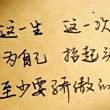 这一生 这一次
为自己 抬起头
至少要骄傲